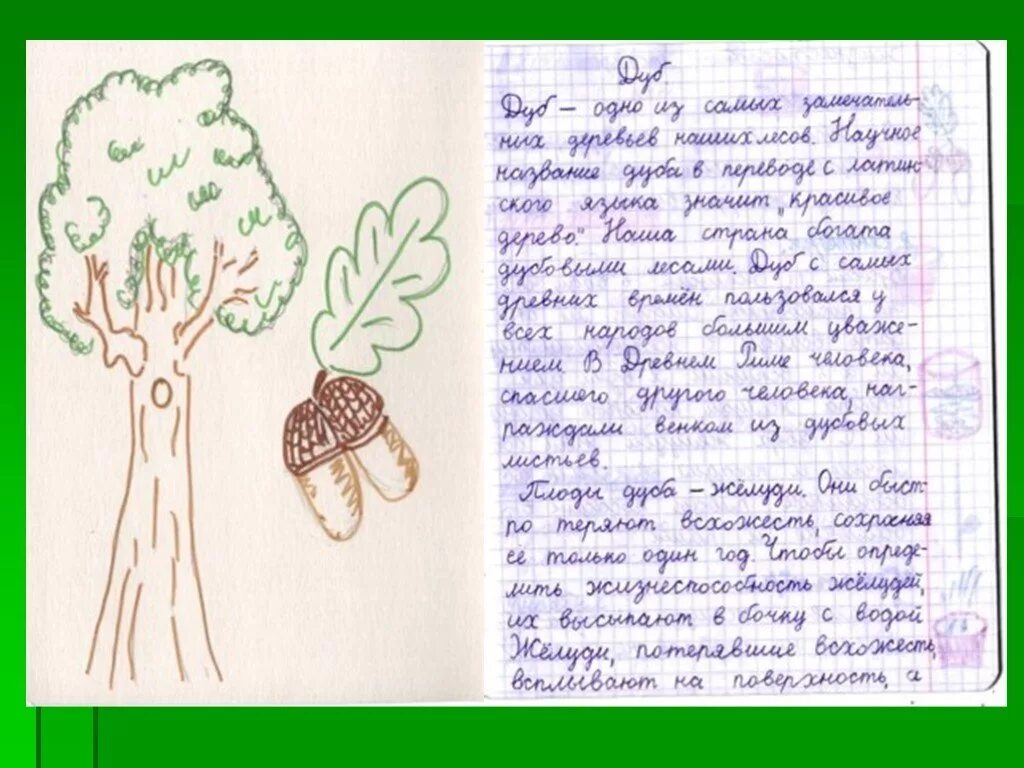 Дуб
Дуб — одно из самых замечатель-
ных деревьев наших лесов. Научное
название дуба в переводе с латин-
ского языка значит „красивое
дерево." Наша страна богата
дубовыми лесами. Дуб с самых
древних времён пользовался у
всех народов большим уваже-
нием В Древнем Риме человека,
спасшего другого человека, наг-
раждали венком из дубовых
листьев.
Плоды дуба — жёлуди. Они быст-
ро теряют всхожесть, сохраняя
её только один год. Чтобы опреде-
лить жизнеспособность жёлудей,
их высыпают в бочку с водой
Жёлуди, потерявшие всхожесть,
всплывают на поверхность, а